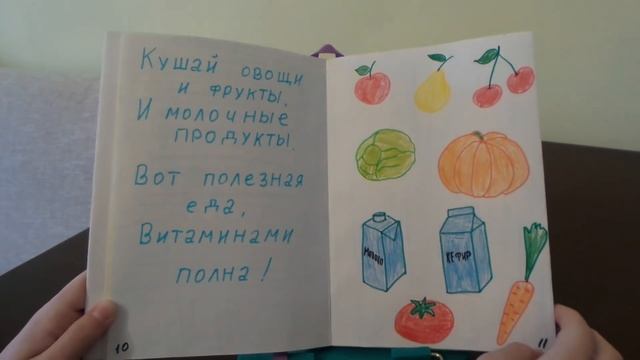 Кушай овощи
и фрукты,
И молочные
продукты.
Вот полезная
еда,
Витаминами
полна!
10
Молоко
КЕФИР
11